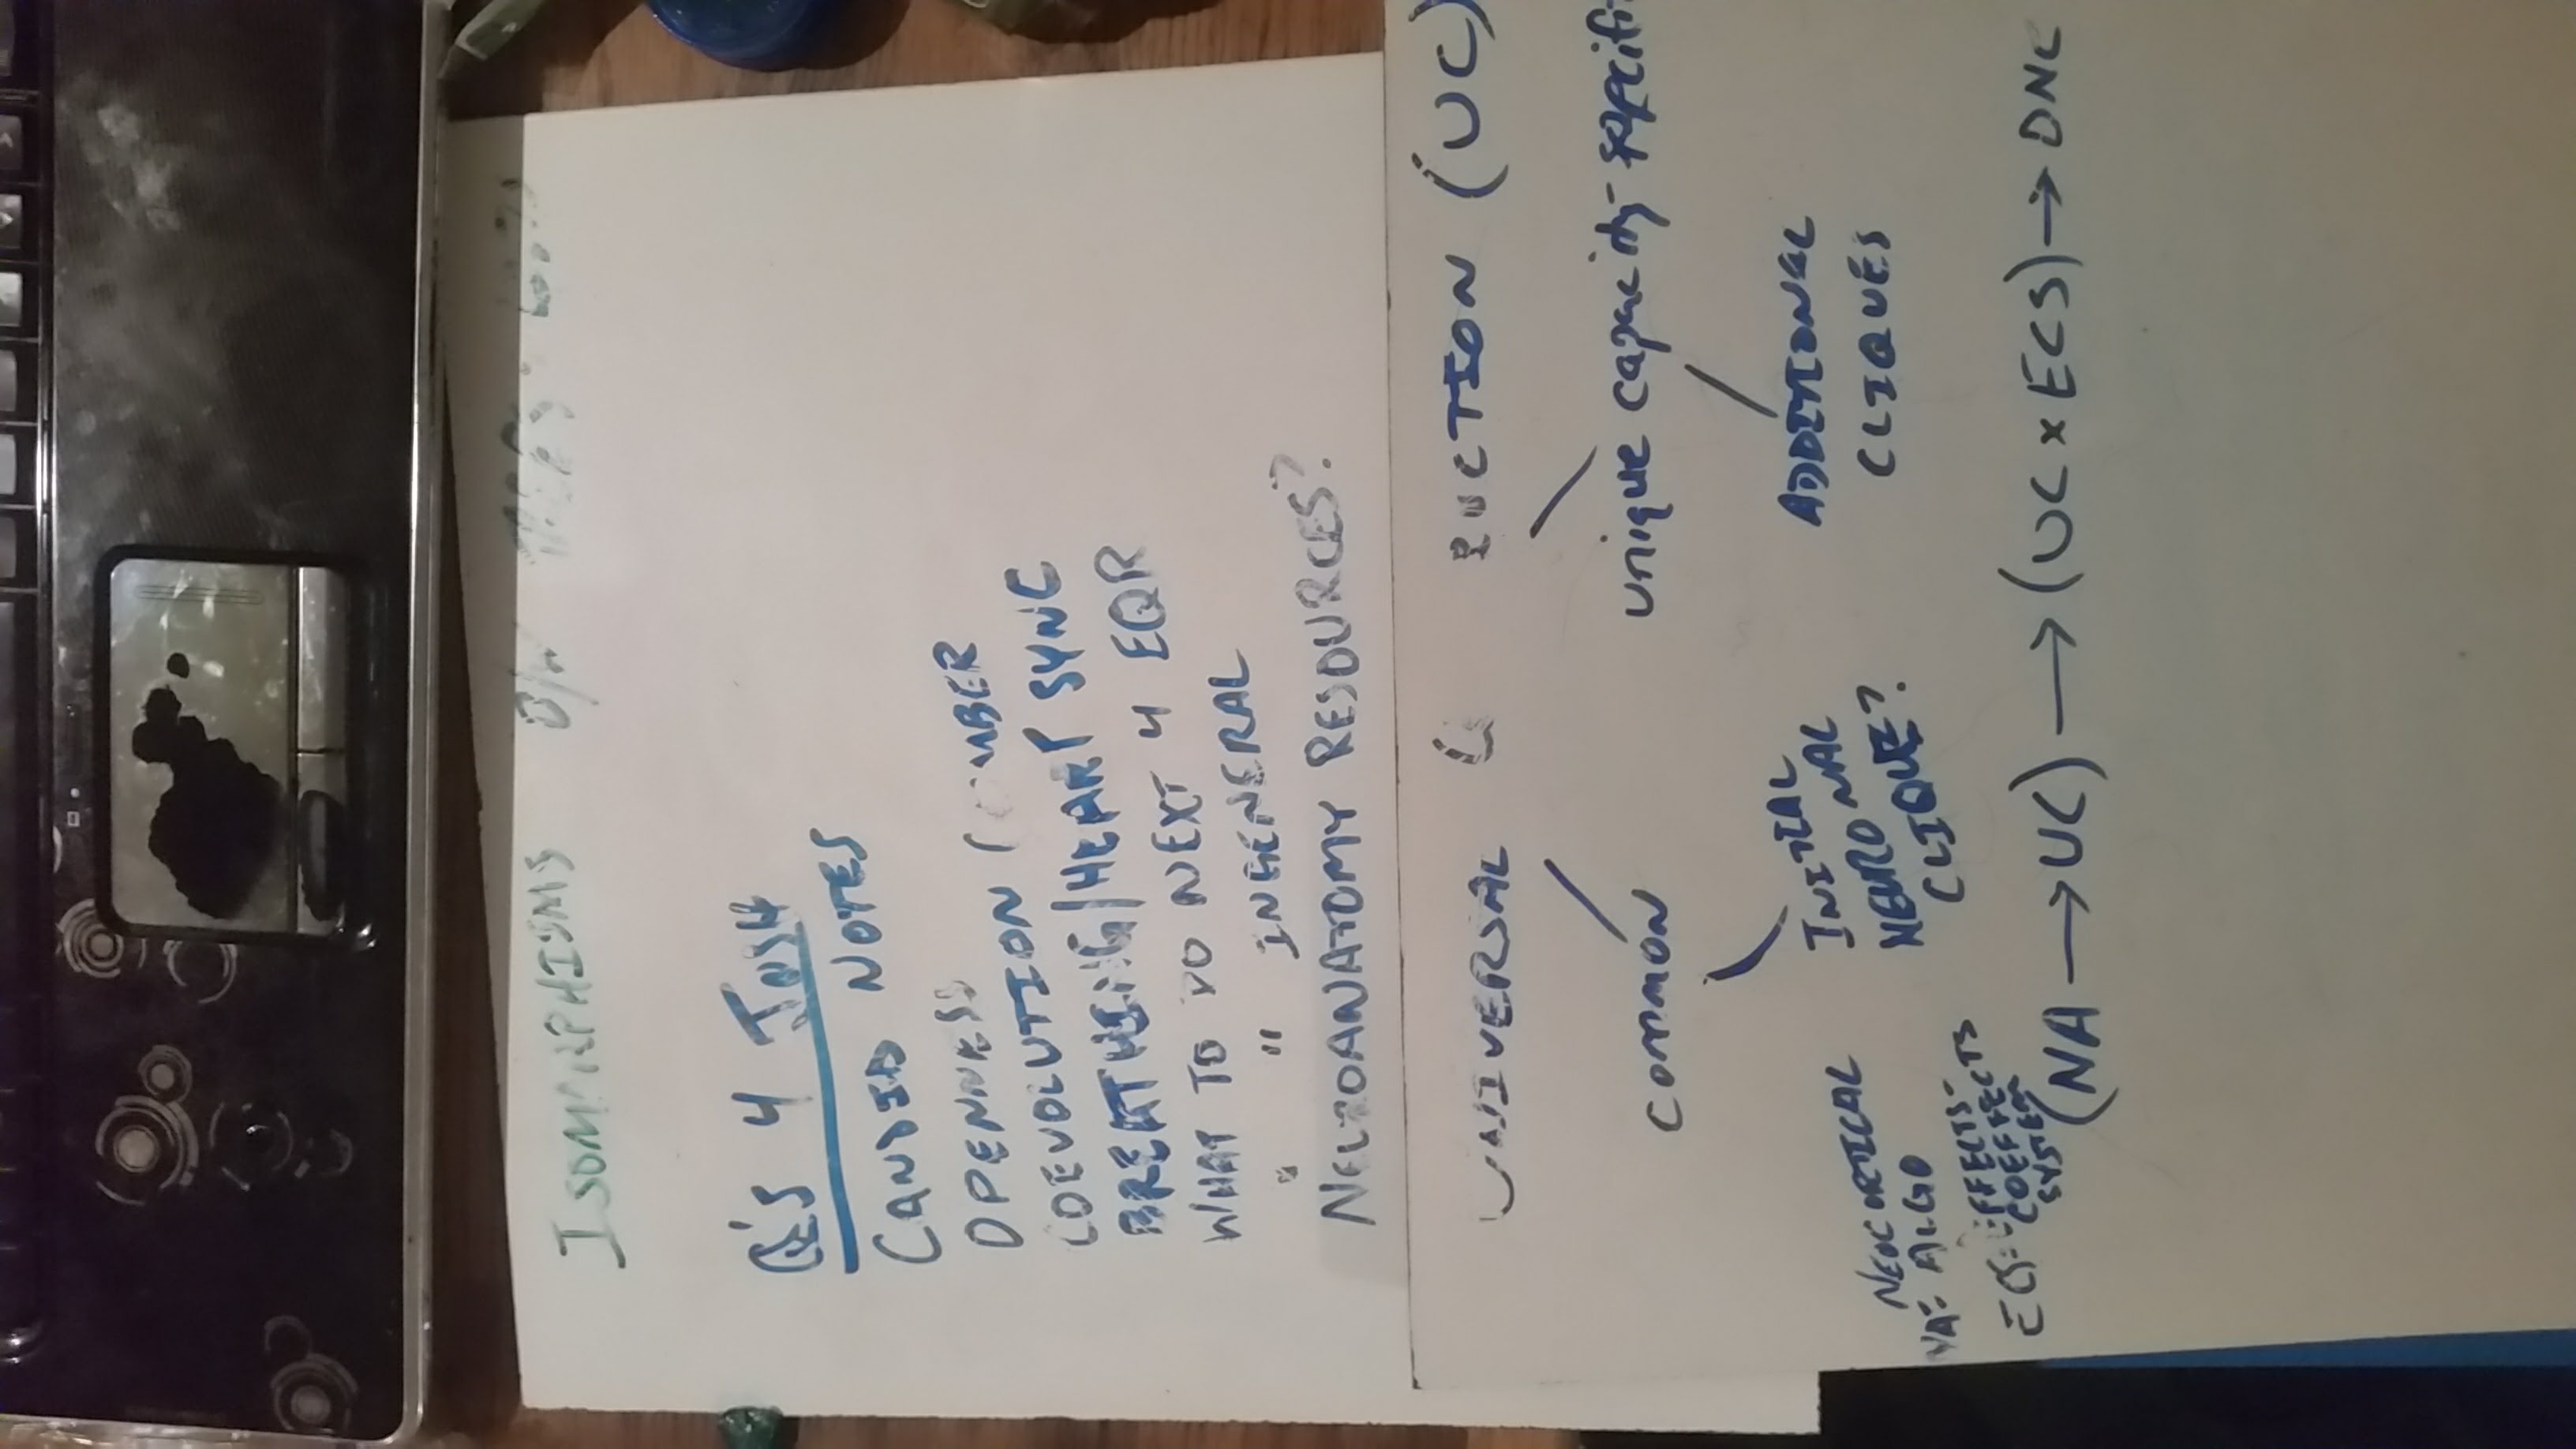 ISOMORPHISMS B/W
Q'S 4 JOSH
CANDID NOTES
OPENNESS
COEVOLUTION
BREATHING/HEART SYNC
WHAT TO DO NEXT 4 EQR
" " INGENERAL
NEUROANATOMY RESOURCES?
UNIVERSAL (UC)
COMMON unique capacity-specifi
INITIAL
NEURONAL
CLIQUE?
ADDITIONAL
CLIQUES
NEOCORTICAL
NA= ALGO
ECS= EFFECTS-
COEFFECTS
SYSTEM
(NA → UC) → (UC x ECS) → DNC